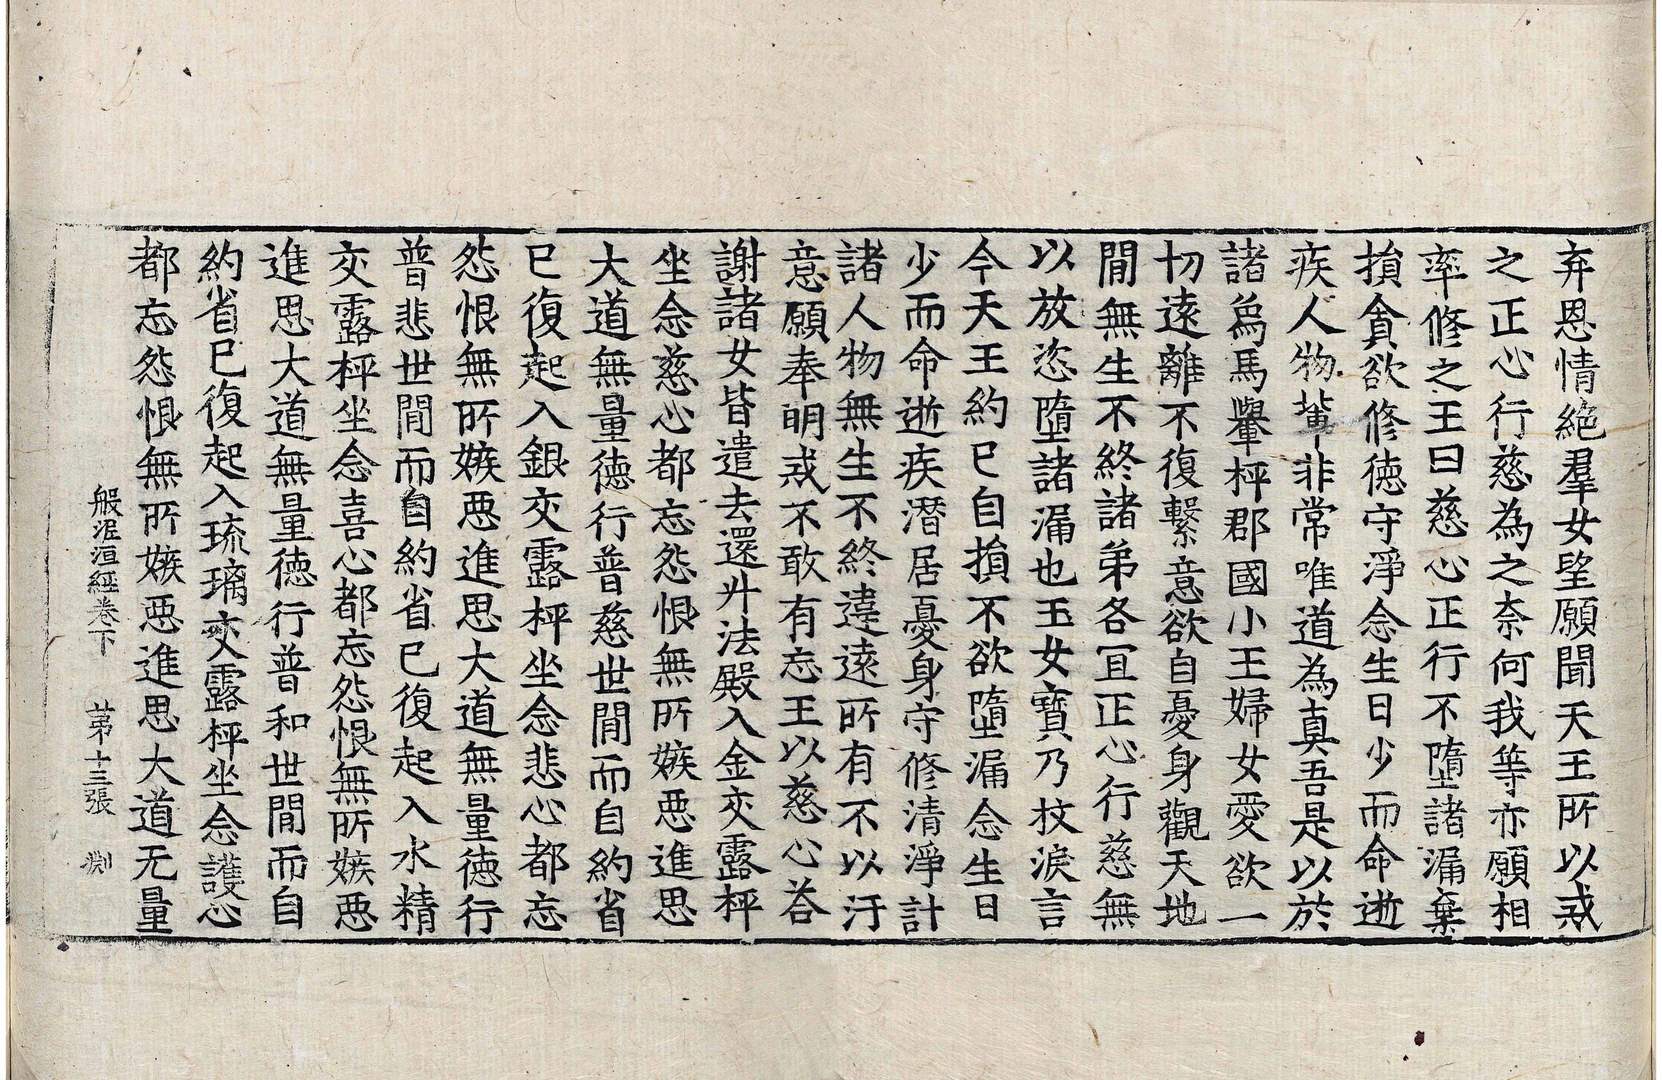 弃恩情絶羣女望願聞天王所以戒
之正心行慈為之奈何我等亦願相
率修之王曰慈心正行不墮諸漏棄
損貪欲修徳守淨念生日少而命逝
疾人物軰非常唯道為真吾是以於
諸為馬轝枰郡國小王婦女愛欲一
切遠離不復繫意欲自憂身觀天地
間無生不終諸弟各宜正心行慈無
以放恣墮諸漏也玉女寶乃杖淚言
今天王約已自損不欲墮漏念生日
少而命逝疾潛居憂身守修清淨計
諸人物無生不終違遠所有不以汙
意願奉明戒不敢有忘王以慈心荅
謝諸女皆遣去還升法殿入金交露枰
坐念慈心都忘怨恨無所嫉惡進思
大道無量徳行普慈世間而自約省
已復起入銀交露枰坐念悲心都忘
怨恨無所嫉惡進思大道無量徳行
普悲世間而自約省已復起入水精
交露枰坐念喜心都忘怨恨無所嫉惡
進思大道無量徳行普和世間而自
約省已復起入琉璃交露枰坐念護心
都忘怨恨無所嫉惡進思大道无量
般泥洹經卷下 第十三張 淵